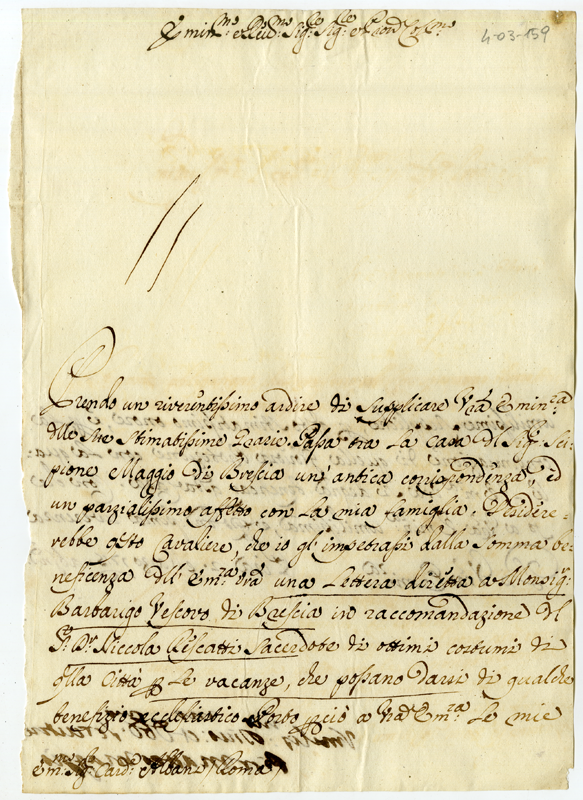 Emin:mo e Reud:mo Sig:re Sig:re e Pad:ron Col:mo
4-03-159
Prendo un riverentissimo ardire di supplicare Vrã Emin:za
dlle sue stimatissime Grazie. Passa tra la casa dl Sig:r Sci-
pione Maggio di Brescia un'antica corrispondenza, ed
un parzialissimo afetto con la mia famiglia. Desidere-
rebbe qsto Cavaliere, che io gli impetrassi dalla somma be-
neficenza dll' Em:za Vrã una Lettera diretta a Monsig:r
Barbarigo Vescovo di Brescia in raccomandazione dl
S:r D:r Niccola Riscatti Sacerdote di ottimi costumi di
qlla Città p le vacanze, che possano darsi di qualche
benefizio ecclesiastico. Porto pciò a Vrã Em:za le mie
Em:o Sig:r Card: Albani / Roma /